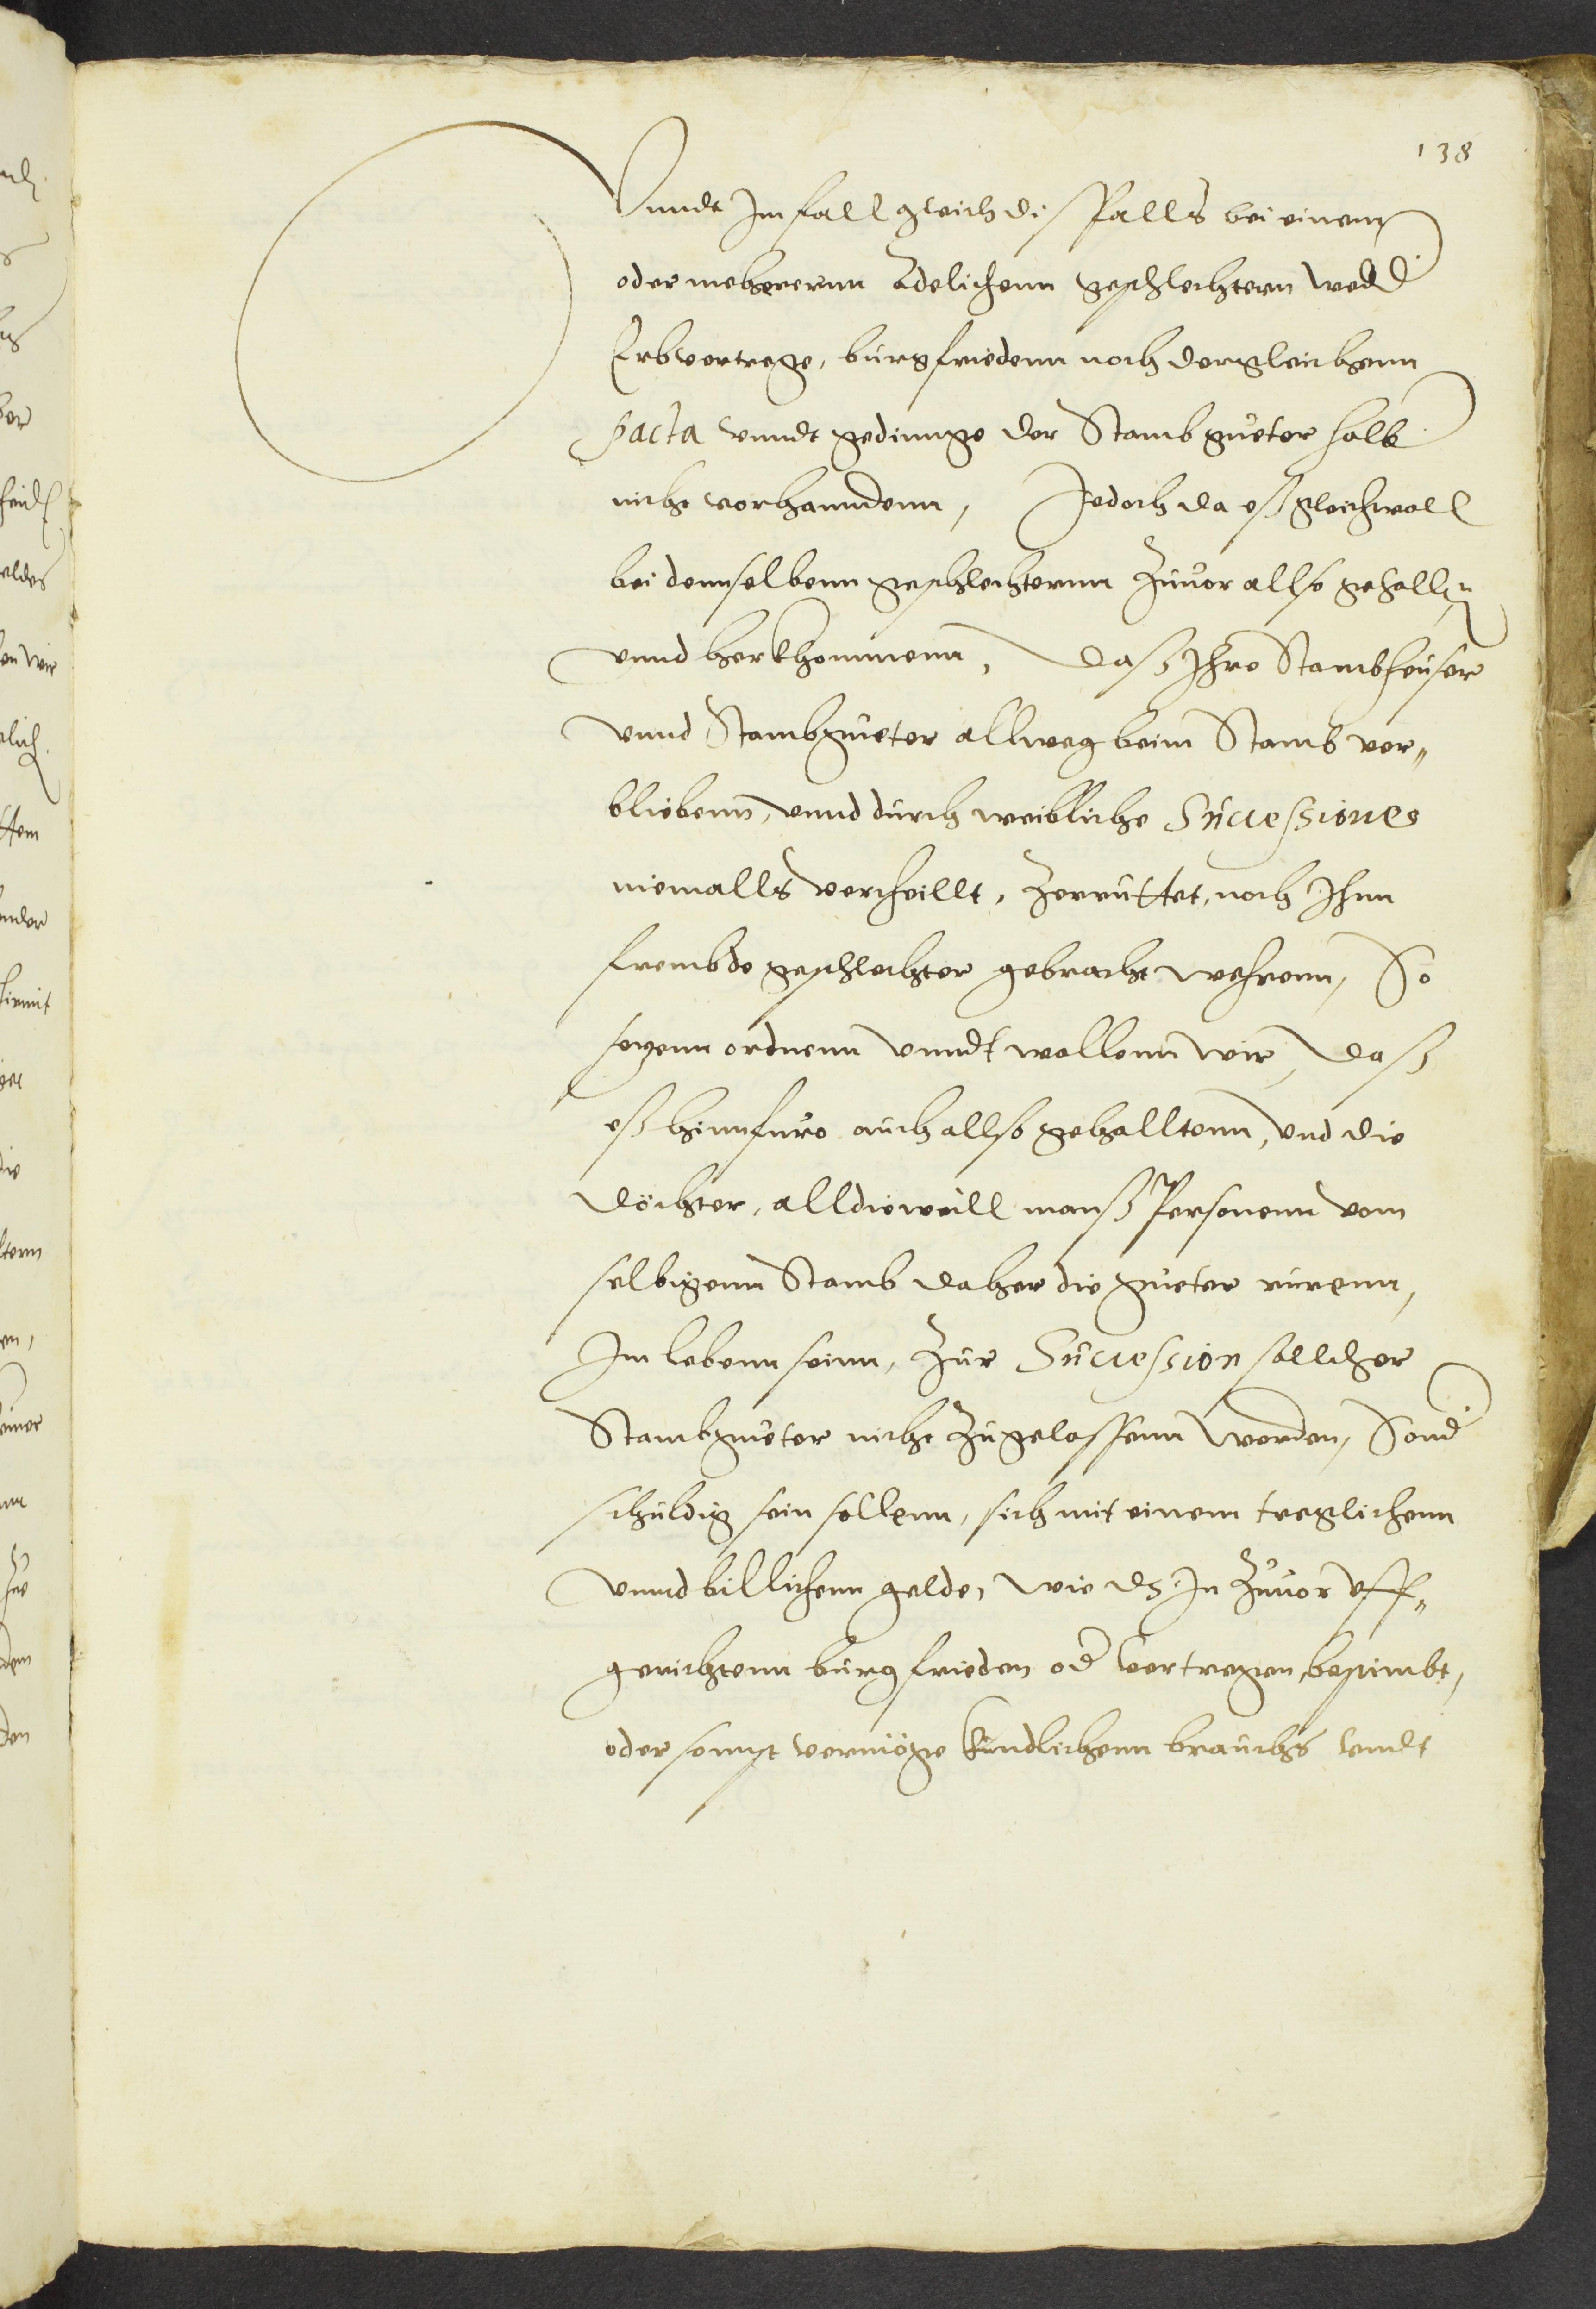 138
Vnndt Im fall gleich dis falls bei einem
oder mehrerenn Adelichenn geschlechtern wed̃
Erbvertrege, burgfriedenn noch dergleichenn
pacta vnndt gedinnge der Stambgüeter halb
nicht vorhanndenn, Jedoch da eß gleichwoll
bei dennselbenn geschlechternn Zuuor allso gehalltñ
vnnd herkhommenn, daß Ihre Stambheuser
vnnd Stambgüeter allweg beim Stamb ver„
bliebenn, vnnd durch weibliche Successiones
niemalls vertheillt, Zerruttet, noch Ihnn
frembde geschlechter gebracht wehrenn, So
setzenn ordnenn vnndt wollenn wir, daß
eß hinnfuro auch allso gehalltenn, vnd die
döchter, alldieweill manß Personenn vom
selbigenn Stamb daher die güeter rürenn,
Im lebenn seinn, Zur Succession sollcher
Stambgüeter nicht Zugelassenn werden, Sond̃
schuldig sein sollenn, sich mit einem treglichenn
vnnd billichenn gelde, wie ds In Zuuor vff„
gerichtenn burgfrieden od̃ Vertregen bestimbt,
oder sonnst vermöge kündlichenn brauchs vnndt